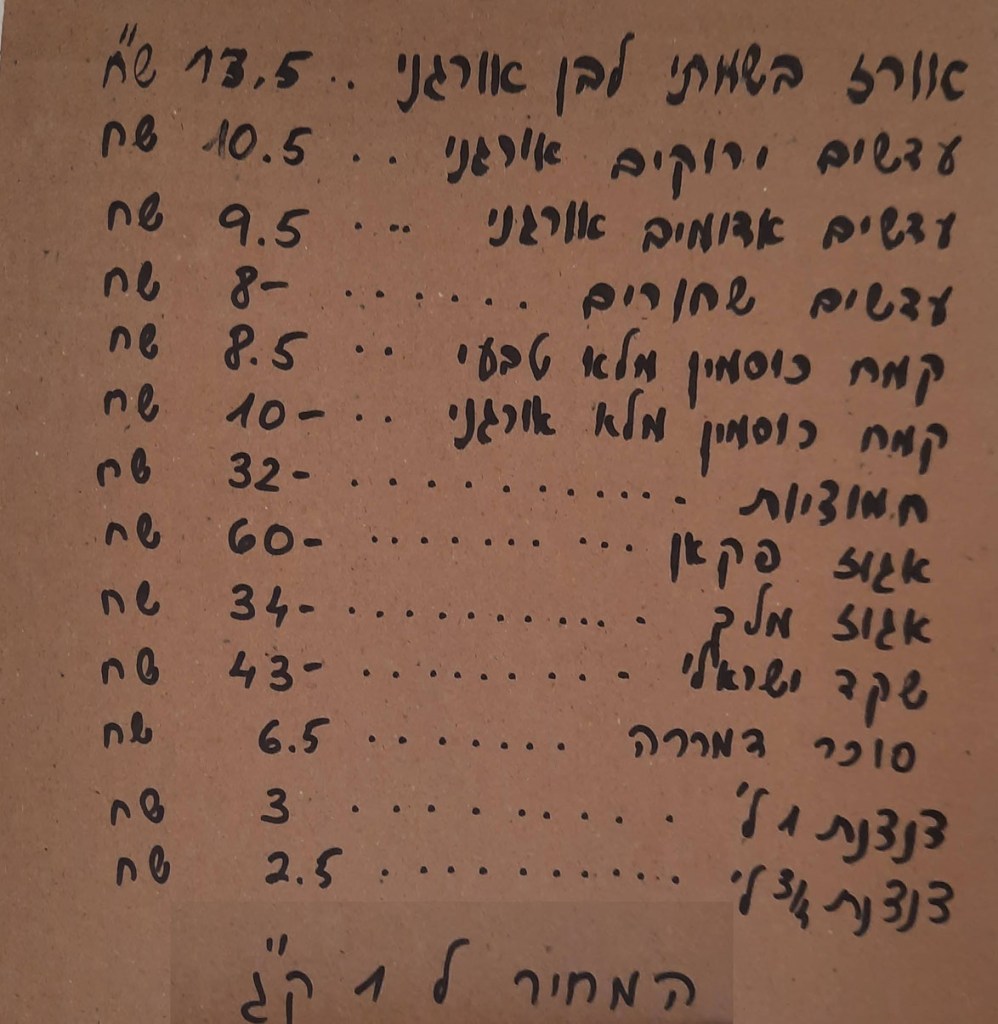 אורז בשמתי לבן אורגני .. 13.5 ש"ח
עדשים ירוקים אורגני .. 10.5 שח
עדשים אדומים אורגני ... 9.5 שח
עדשים שחורים ....... 8- שח
קמח כוסמין מלא טבעי .. 8.5 שח
קמח כוסמין מלא אורגני .. 10- שח
חמוציות ............. 32- שח
אגוז פקאן .......... 60- שח
אגוז מלך ............ 34- שח
שקד ישראלי .......... 43- שח
סוכר דמררה ....... 6.5 שח
צנצנת 1 לי' .......... 3 שח
צנצנת 3/4 לי' .......... 2.5 שח
המחיר ל 1 ק"ג